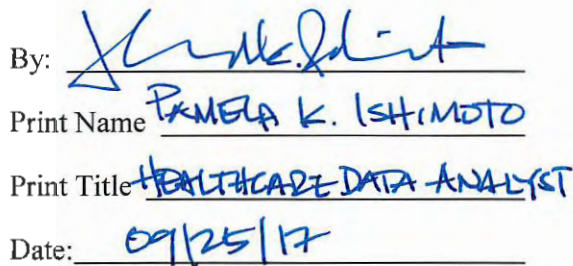 By:
Print Name PAMELA K. ISHIMOTO
Print Title HEALTHCARE DATA ANALYST
Date: 09/25/17